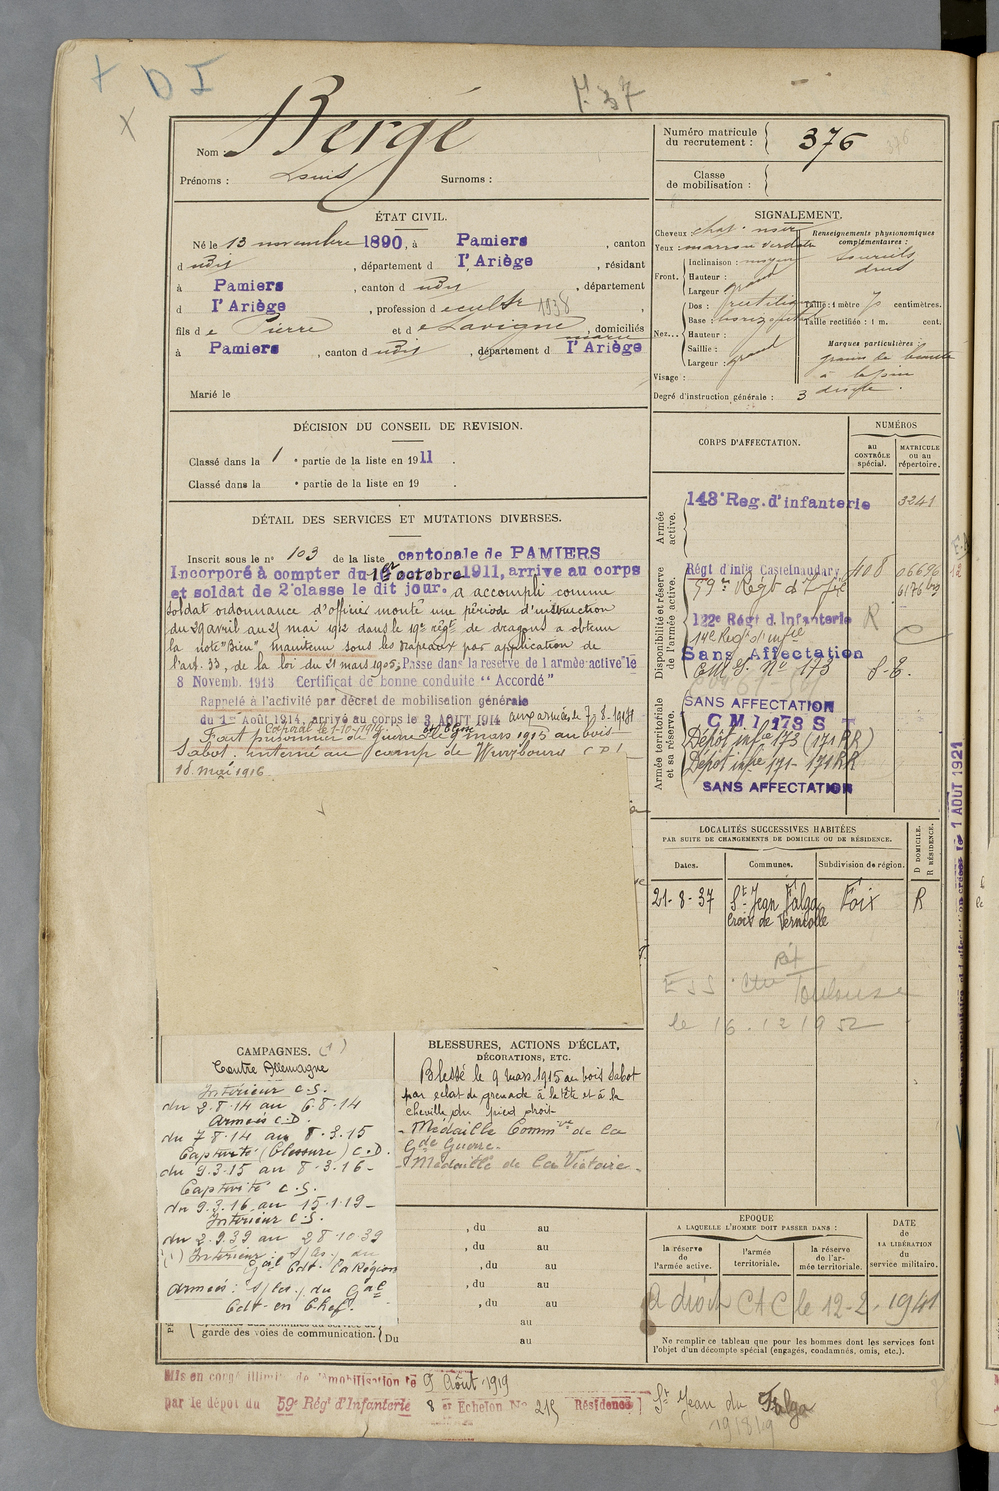 + D I
X
Nom : Bergé
Prénoms : Louis Surnoms :
ÉTAT CIVIL.
Né le 13 novembre 1890, à Pamiers, canton
d udit, département d l'Ariège, résidant
à Pamiers, canton d udit, département
d l'Ariège, profession de cultr 1938,
fils d e Pierre et d e Lavigne marie, domiciliés
à Pamiers, canton d udit, département d l'Ariège
Marié le
DÉCISION DU CONSEIL DE REVISION.
Classé dans la 1e partie de la liste en 1911.
Classé dans la e partie de la liste en 19 .
DÉTAIL DES SERVICES ET MUTATIONS DIVERSES.
Inscrit sous le n° 103 de la liste cantonale de PAMIERS
Incorporé à compter du 1er octobre 1911, arrive au corps
et soldat de 2e classe le dit jour. a accompli comme
soldat ordonnance d'officier monté une période d'instruction
du 29 avril au 25 mai 1912 dans le 19e régt de dragons a obtenu
la note "Bien" maintenu sous les drapeaux par application de
l'art. 33, de la loi du 21 mars 1905, Passe dans la reserve de l'armée active le
8 Novemb. 1913 Certificat de bonne conduite "Accordé"
Rappelé à l'activité par décret de mobilisation générale
du 1er Août 1914, arrivé au corps le 3 AOUT 1914 aux armées le 7-8-1914
Caporal le 1-10-1914.
Fait prisonnier de guerre le 9 mars 1915 au bois
Sabot. Interné au camp de Wurzbourg
18 mai 1916
CAMPAGNES. (1)
Contre Allemagne
Intérieur C.S.
du 2-8-14 au 6-8-14
Armées C.D.
du 7-8-14 au 8.3.15
Captivité (blessure) C.D.
du 9.3.15 au 8.3.16-
Captivité C.S.
du 9.3.16 au 15.1.19-
Intérieur C.S.
du 2.9.39 au 28.10.39
(1) Intérieur : s/les / du
Gal Cdt. la Région
Armées : s/les / du Gal
Cdt-en Chef.
garde des voies de communication. Du
BLESSURES, ACTIONS D'ÉCLAT,
DÉCORATIONS, ETC.
Blessé le 9 mars 1915 au bois Sabot
par eclat de grenade à la tête et à la
cheville du pied droit
- Médaille Commve de la
Gde Guerre-
- Médaille de la Victoire.
, du au
, du au
, du au
, du au
, du au
au
au
Mis en congé illimité de démobilisation le 9 Août 1919
par le dépot du 59e Rég' d'Infanterie 8 er Echelon No 215 Résidence St Jean du Falga
19/8/19
Numéro matricule
du recrutement : 376
Classe
de mobilisation :
SIGNALEMENT.
Cheveux chat. noir
Yeux marron verdatre
Front. Inclinaison : moyen
Hauteur : grand
Largeur
Nez... Dos : rectiligne
Base : horizontal
Hauteur :
Saillie :
Largeur : grand
Visage :
Renseignements physionomiques
complémentaires :
sourcils
drus
Taille : 1 mètre 70 centimètres.
Taille rectifiée : 1 m. cent.
Marques particulières :
droite.
Degré d'instruction générale : 3
CORPS D'AFFECTATION.
NUMÉROS
au
CONTRÔLE
spécial.
MATRICULE
ou au
répertoire.
Armée
active.
143e Reg. d'infanterie 3241
Disponibilité et réserve
de l'armée active.
Régt d'infie Castelnaudary 408 06696
59e Régt d'Infie
122e Régt d. Infanterie R
14e Régt d'infie
Sans Affectation
CM I. No 173 S-E.
Armée territoriale
et sa réserve.
SANS AFFECTATION
CMI 173 S T
Dépôt infie 173 (171 RR)
Dépôt infie 171-171 RR
SANS AFFECTATION
LOCALITÉS SUCCESSIVES HABITÉES
PAR SUITE DE CHANGEMENTS DE DOMICILE OU DE RÉSIDENCE.
Dates. Communes. Subdivision de région.
D DOMICILE.
R RÉSIDENCE.
21-8-37 St Jean Falga Foix R
Croix de Verniolle
Toulouse
le 16.12.1952
EPOQUE
A LAQUELLE L'HOMME DOIT PASSER DANS :
la réserve
de
l'armée active.
l'armée
territoriale.
la réserve
de l'ar-
mée territoriale.
DATE
de
LA LIBÉRATION
du
service militaire.
a droit CAC le 12-2-1941
Ne remplir ce tableau que pour les hommes dont les services font
l'objet d'un décompte spécial (engagés, condamnés, omis, etc.).
1 AOUT 1921